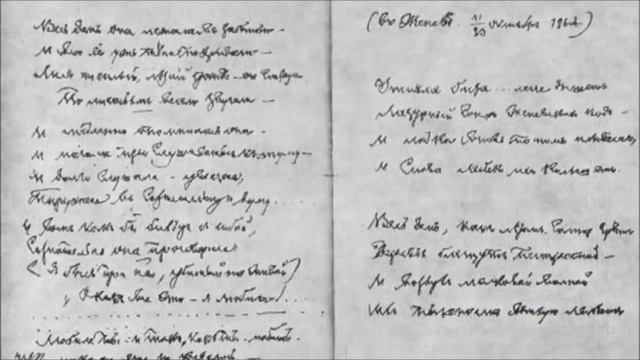 Весь день она лежала в забытьи –
И всю её уж тени покрывали –
Лил теплый, летний дождь – его струи
По листьям весело звучали –
И медленно опомнилась она –
И начала прислушиваться к шуму –
И долго слушала – увлечена,
Погружена в сознательную думу.
И вот, как бы беседуя с собой,
Сознательно она проговорила
(Я был при ней, убитый но живой)
О как все это – я любила!
Любила ты – и так, как ты – любить
(в Женеве. 11/23 октября 1864)
Утихла биза... легче дышит
Лазурный сонм Женевских вод –
И лодка вновь по ним плывет,
И снова лебедь их колышет.
Весь день, как летом, солнце греет
Деревья блещут пестротой –
И воздух ласковой волной
Их пышность ветхую лелеет